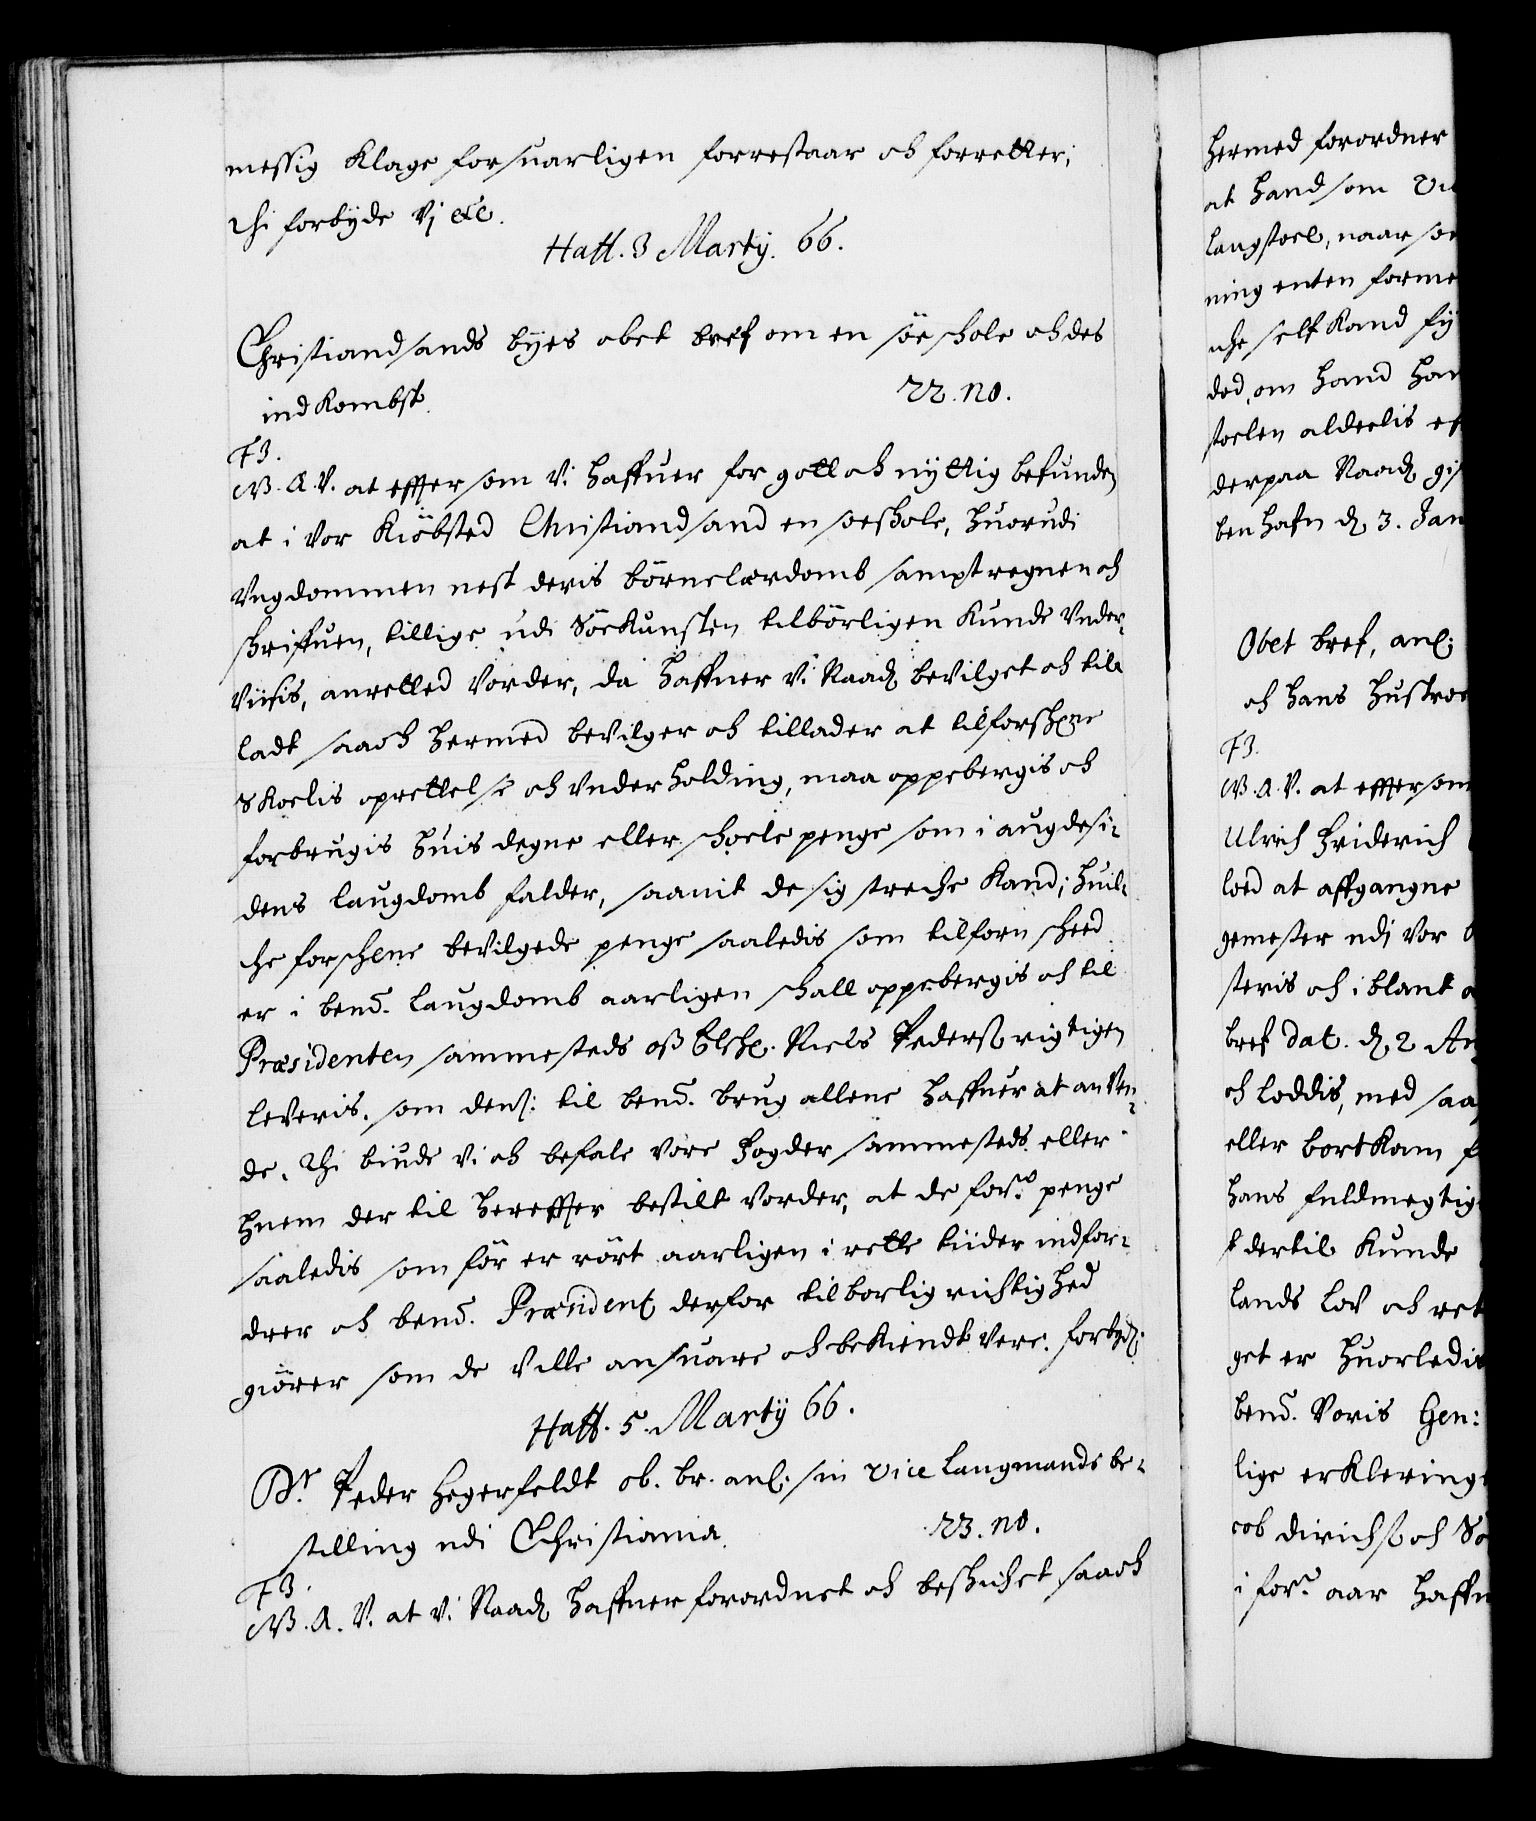 messig Klage forsuarligen forrestaar och forretter;
thi forbyde Vj etc.
Haff. 3 Martij. 66.
Christiandsands byes obet bref om en söe schole och des
indkombst.
22. no.
F3.
W. A. V. at effter som Vi haffuer for gott och nyttig befunden
at i Vor Kiöbsted Christiandsand en soeschole, huorudi
Vngdommen nest deris börnelærdomb sampt regnen och
schriffuen, tillige udi Söekunsten tilbörligen kunde Vnder-
Viisis, anretted Vorder, da haffuer Vi Naadl. bevilget och til-
ladt saa och hermed bevilger och tillader at til forschrne
Skoelis oprettelse och Vnderholding, maa oppebergis och
forbrugis huis degne eller schoele penge som i augdesi-
dens laugdomb falder, saavit de sig streche kand; huil-
che forschrne bevilgede penge saaledis som tilforn scheed
er i bend. laugdomb aarligen schall oppebergis och til
Præsidenten sammesteds oß Elschl. Niels Pederß rigtigen
leveris, som dens: til bend. brug allene haffuer at anVen-
de. Thi biude Vi och befale Vore Fogder sammesteds eller
huem der til hereffter bestilt Vorder, at de forne penge
saaledis som för er rört aarligen i rette tiider indfor-
drer och bend. Præsident derfor tilborlig richtighed
giörer som de Ville ansuare och bekiendt Vere. forbydl.
Haff. 5. Martij 66.
Dr. Peder Hegerfeldt ob. br. anl. sin vice laugmands be-
stilling udi Christiania.
23. no.
F3.
W. A. V. at Vi Naadl. haffuer forordnet och beschichet saa och
hermed forordner
at hand som
laugstoel, naar
ning enten
che self kand
ded, om hand
stoelen aldeelis
derpaa Naadl.
benhafn d. 3. Jan
Obet bref, anl:
och hans hustroe
F3.
W. A. V. at effter som
Ulrich Friderich
loed at affgangne
gemester udj Vor
steris och i blant
bref dat. d. 2
och loddis, med
eller bortkom
hans fuldmegtig
dertil kunde
lands lov och
get er huorledis
bend. Voris Gen:
lige erklering
cob dirichß och
i forne aar